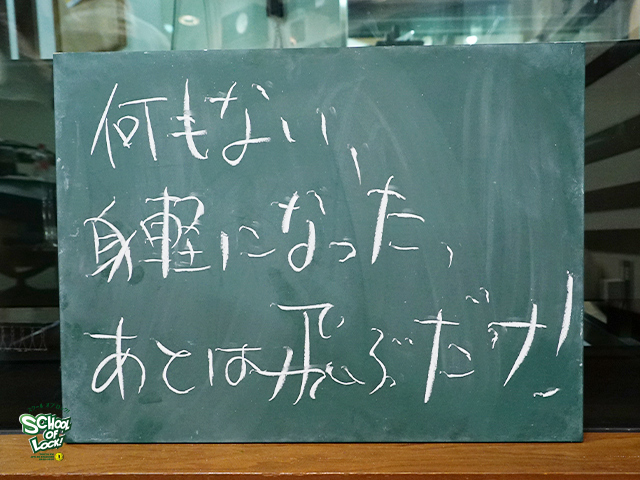 何もない、
身軽になった、
あとは飛ぶだけ!
SCHOOL
OF
LOCK!